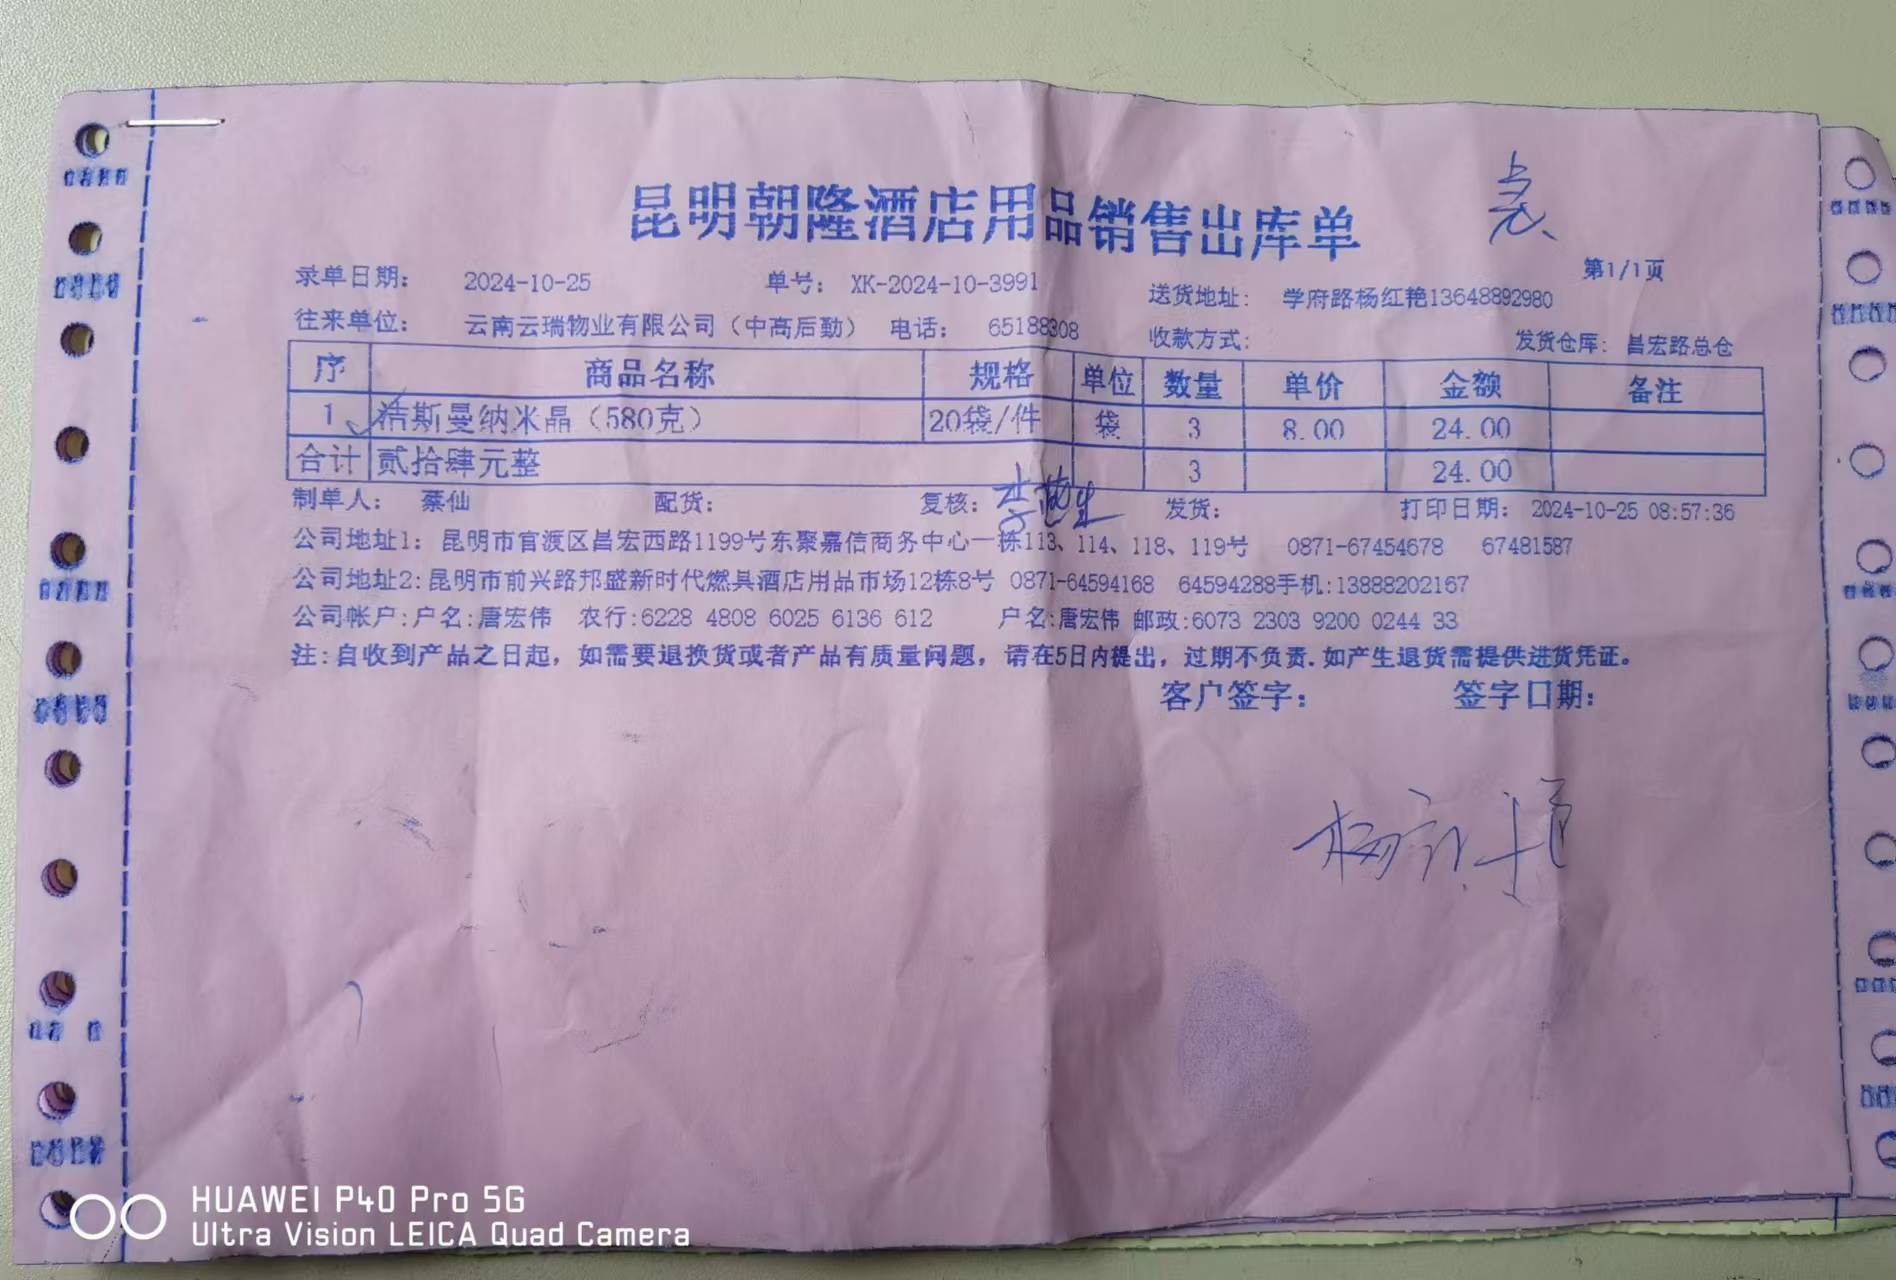 昆明朝隆酒店用品销售出库单
第1/1页
录单日期： 2024-10-25 单号： XK-2024-10-3991 送货地址： 学府路杨红艳13648892980
往来单位： 云南云瑞物业有限公司（中高后勤） 电话： 65188308 收款方式： 发货仓库： 昌宏路总仓
序 商品名称 规格 单位 数量 单价 金额 备注
1 浩斯曼纳米晶（580克） 20袋/件 袋 3 8.00 24.00
合计 贰拾肆元整 3 24.00
制单人： 蔡仙 配货： 复核： 发货： 打印日期： 2024-10-25 08:57:36
公司地址1：昆明市官渡区昌宏西路1199号东聚嘉信商务中心一栋113、114、118、119号 0871-67454678 67481587
公司地址2:昆明市前兴路邦盛新时代燃具酒店用品市场12栋8号 0871-64594168 64594288手机:13888202167
公司帐户:户名:唐宏伟 农行:6228 4808 6025 6136 612 户名:唐宏伟 邮政:6073 2303 9200 0244 33
注:自收到产品之日起，如需要退换货或者产品有质量问题，请在5日内提出，过期不负责.如产生退货需提供进货凭证。
客户签字： 签字日期:
HUAWEI P40 Pro 5G
Ultra Vision LEICA Quad Camera